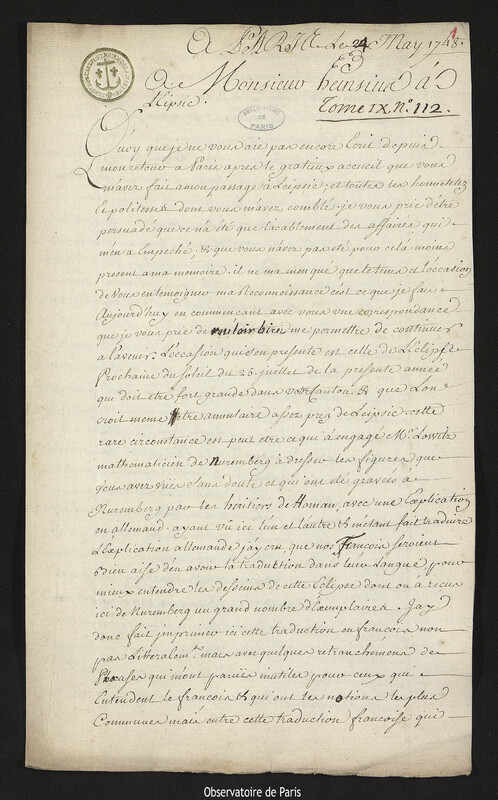 A PARIS Le 24 May 1748.
1
Ed
A Monsieur heinsius à
Leipsic.
Tome IX. N.º 112.
OBSERVATOIRE
DE
PARIS
Quoy que je ne vous aie pas encore Ecrit depuis
mon retour a Paris apres le gratieux accueil que vous
m'avez fait a mon passage à Leipsic, et toutes les honnetetez
& politesses dont vous m'avez comblé. je vous prie d'etre
persuadé que ce n'a été que l'acablement des affaires qui
m'en a Empeché, & que vous n'avez pas eté pour cela moins
present a ma memoire. il ne m'a manqué que le tems et l'occasion
de Vous en temoigner ma Reconnoissance c'est ce que je fais
Aujourd'huy en commencant avec vous une correspondance
que je vous prie de vouloir bien me permettre de continuer
a l'avenir. L'occasion qui s'en presente est celle de L'Eclipse
Prochaine du Soleil du 25 juillet de la presente année
qui doit etre fort grande dans votre Canton & que Lon
croit meme etre annulaire assez pres de Leipsic. cette
rare circonstance est peut etre ce qui à engagé Mr. Lowitz
mathematicien de Nuremberg à dresser les figures que
Vous avez vües sans doute et qui ont eté gravées à
Nuremberg par les heritiers de Homan, avec une Explication
en allemand. ayant vû ici l'un et l'autre & m'etant fait traduire
L'Explication allemande j'ay cru que nos François seroient
bien aise d'en avoir la traduction dans leur Langue pour
mieux entendre les desseins de cette Eclipse dont on a recus
ici de Nuremberg un grand nombre d'Exemplaires. J'ay
donc fait imprimer ici cette traduction en francois non
pas Litteralemt. mais avec quelques retranchemens de
Phrases qui m'ont parües inutiles pour ceux qui
Entendent le francois & qui ont les notions les plus
Communes mais outre cette traduction francoise qui
Observatoire de Paris